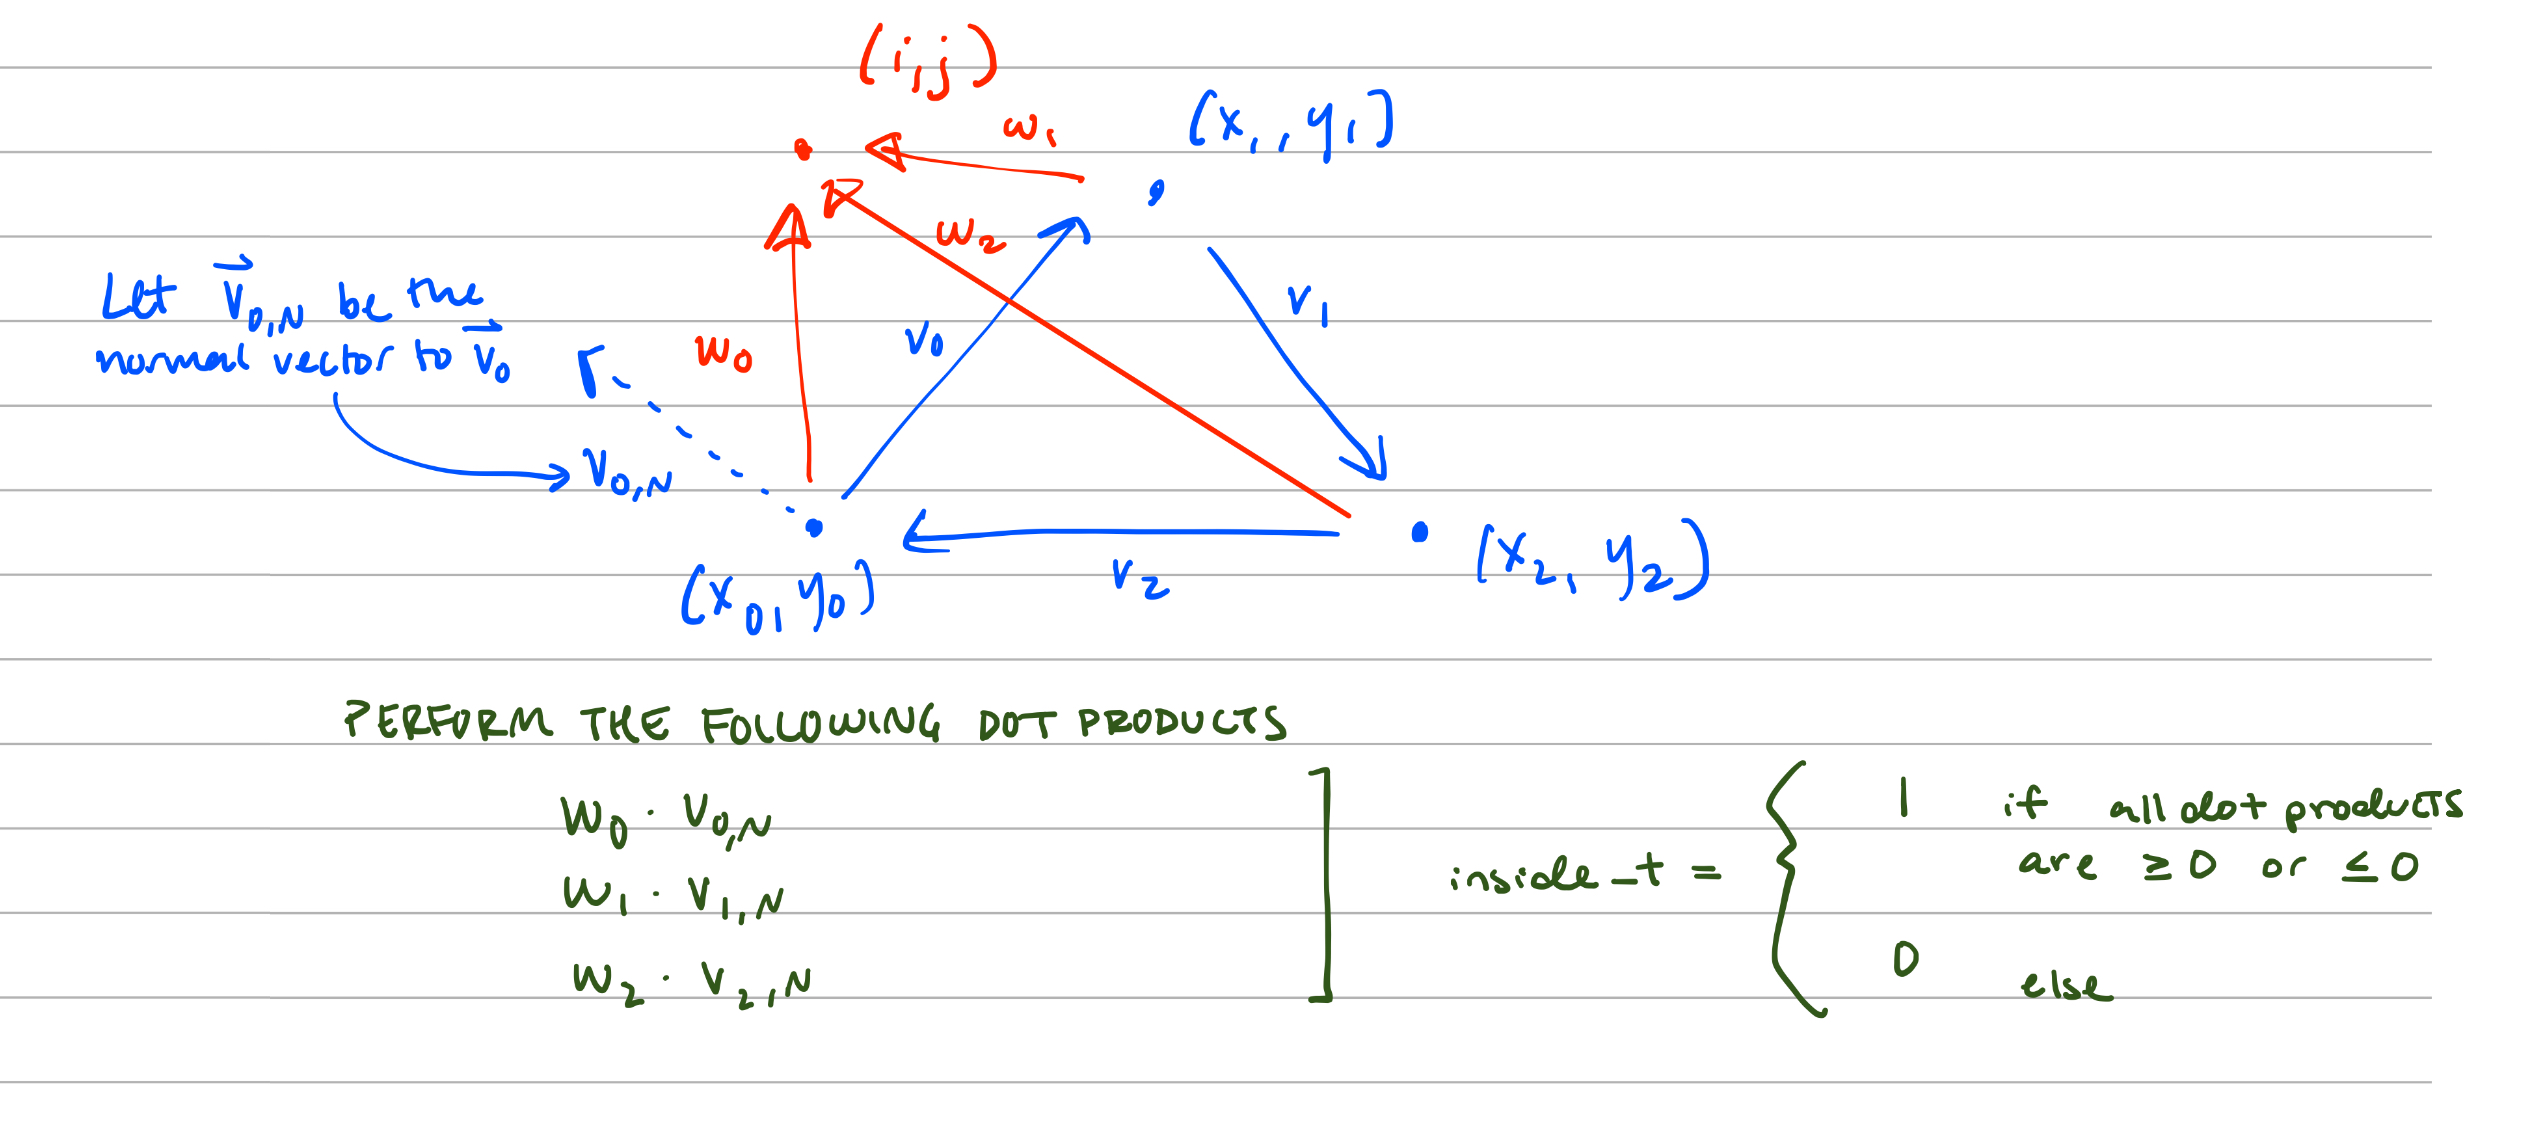 (i,j)
w₁
(x₁, y₁)
w₂
Let v⃗₀,N be the
normal vector to v⃗₀
w₀
v₀
v₁
v₀,N
(x₀, y₀)
v₂
(x₂, y₂)
PERFORM THE FOLLOWING DOT PRODUCTS
w₀ · v₀,N
w₁ · v₁,N
w₂ · v₂,N
inside_t = { 1 if all dot products
are ≥ 0 or ≤ 0
0 else